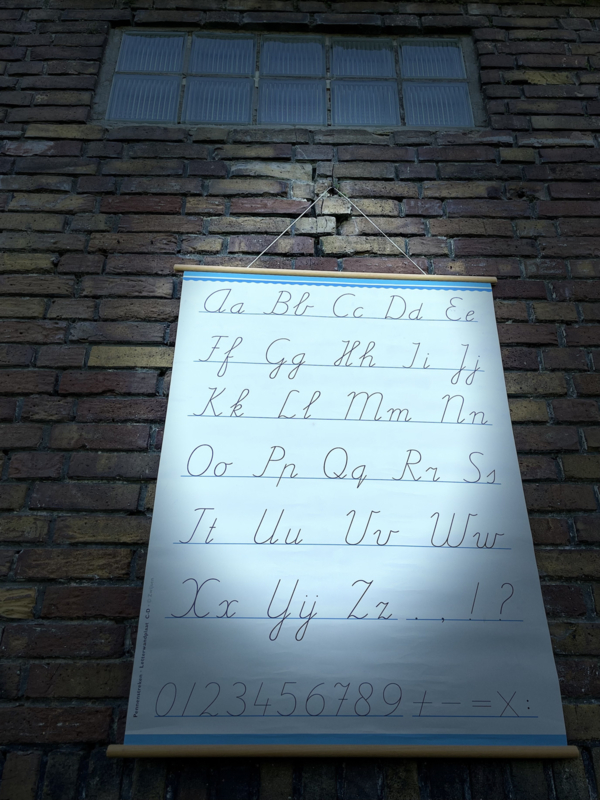 Aa Bb Cc Dd Ee
Ff Gg Hh Ii Jj
Kk Ll Mm Nn
Oo Pp Qq Rr Ss
Tt Uu Vv Ww
Xx Yij Zz . , ! ?
0123456789 + - = x :